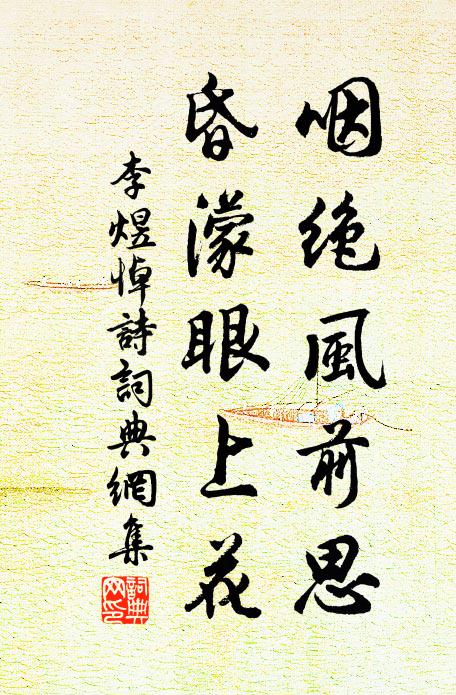 咽絶風前思
昏濛眼上花
李煜悼詩詞典網集
詞典網印